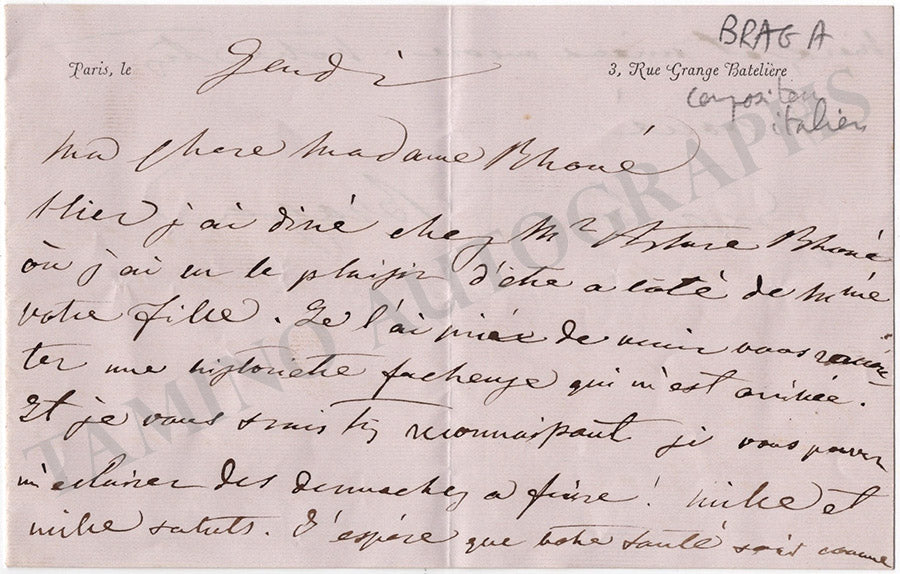 BRAGA
Paris, le Jeudi 3, Rue Grange Batelière
compositeur
italien
Ma chere Madame Rhoné
Hier j'ai diné chez Mr Arture Rhoné
où j'ai eu le plaisir d'être a coté de Mme
votre fille. Je l'ai priée de venir vous racon-
ter une historiette facheuse qui m'est arrivée.
Et je vous serais très reconnaissant si vous pouvez
m'eclairer des demarches a faire! mille et
mille saluts. J'espère que votre santé soit comme
TAMINO AUTOGRAPHS